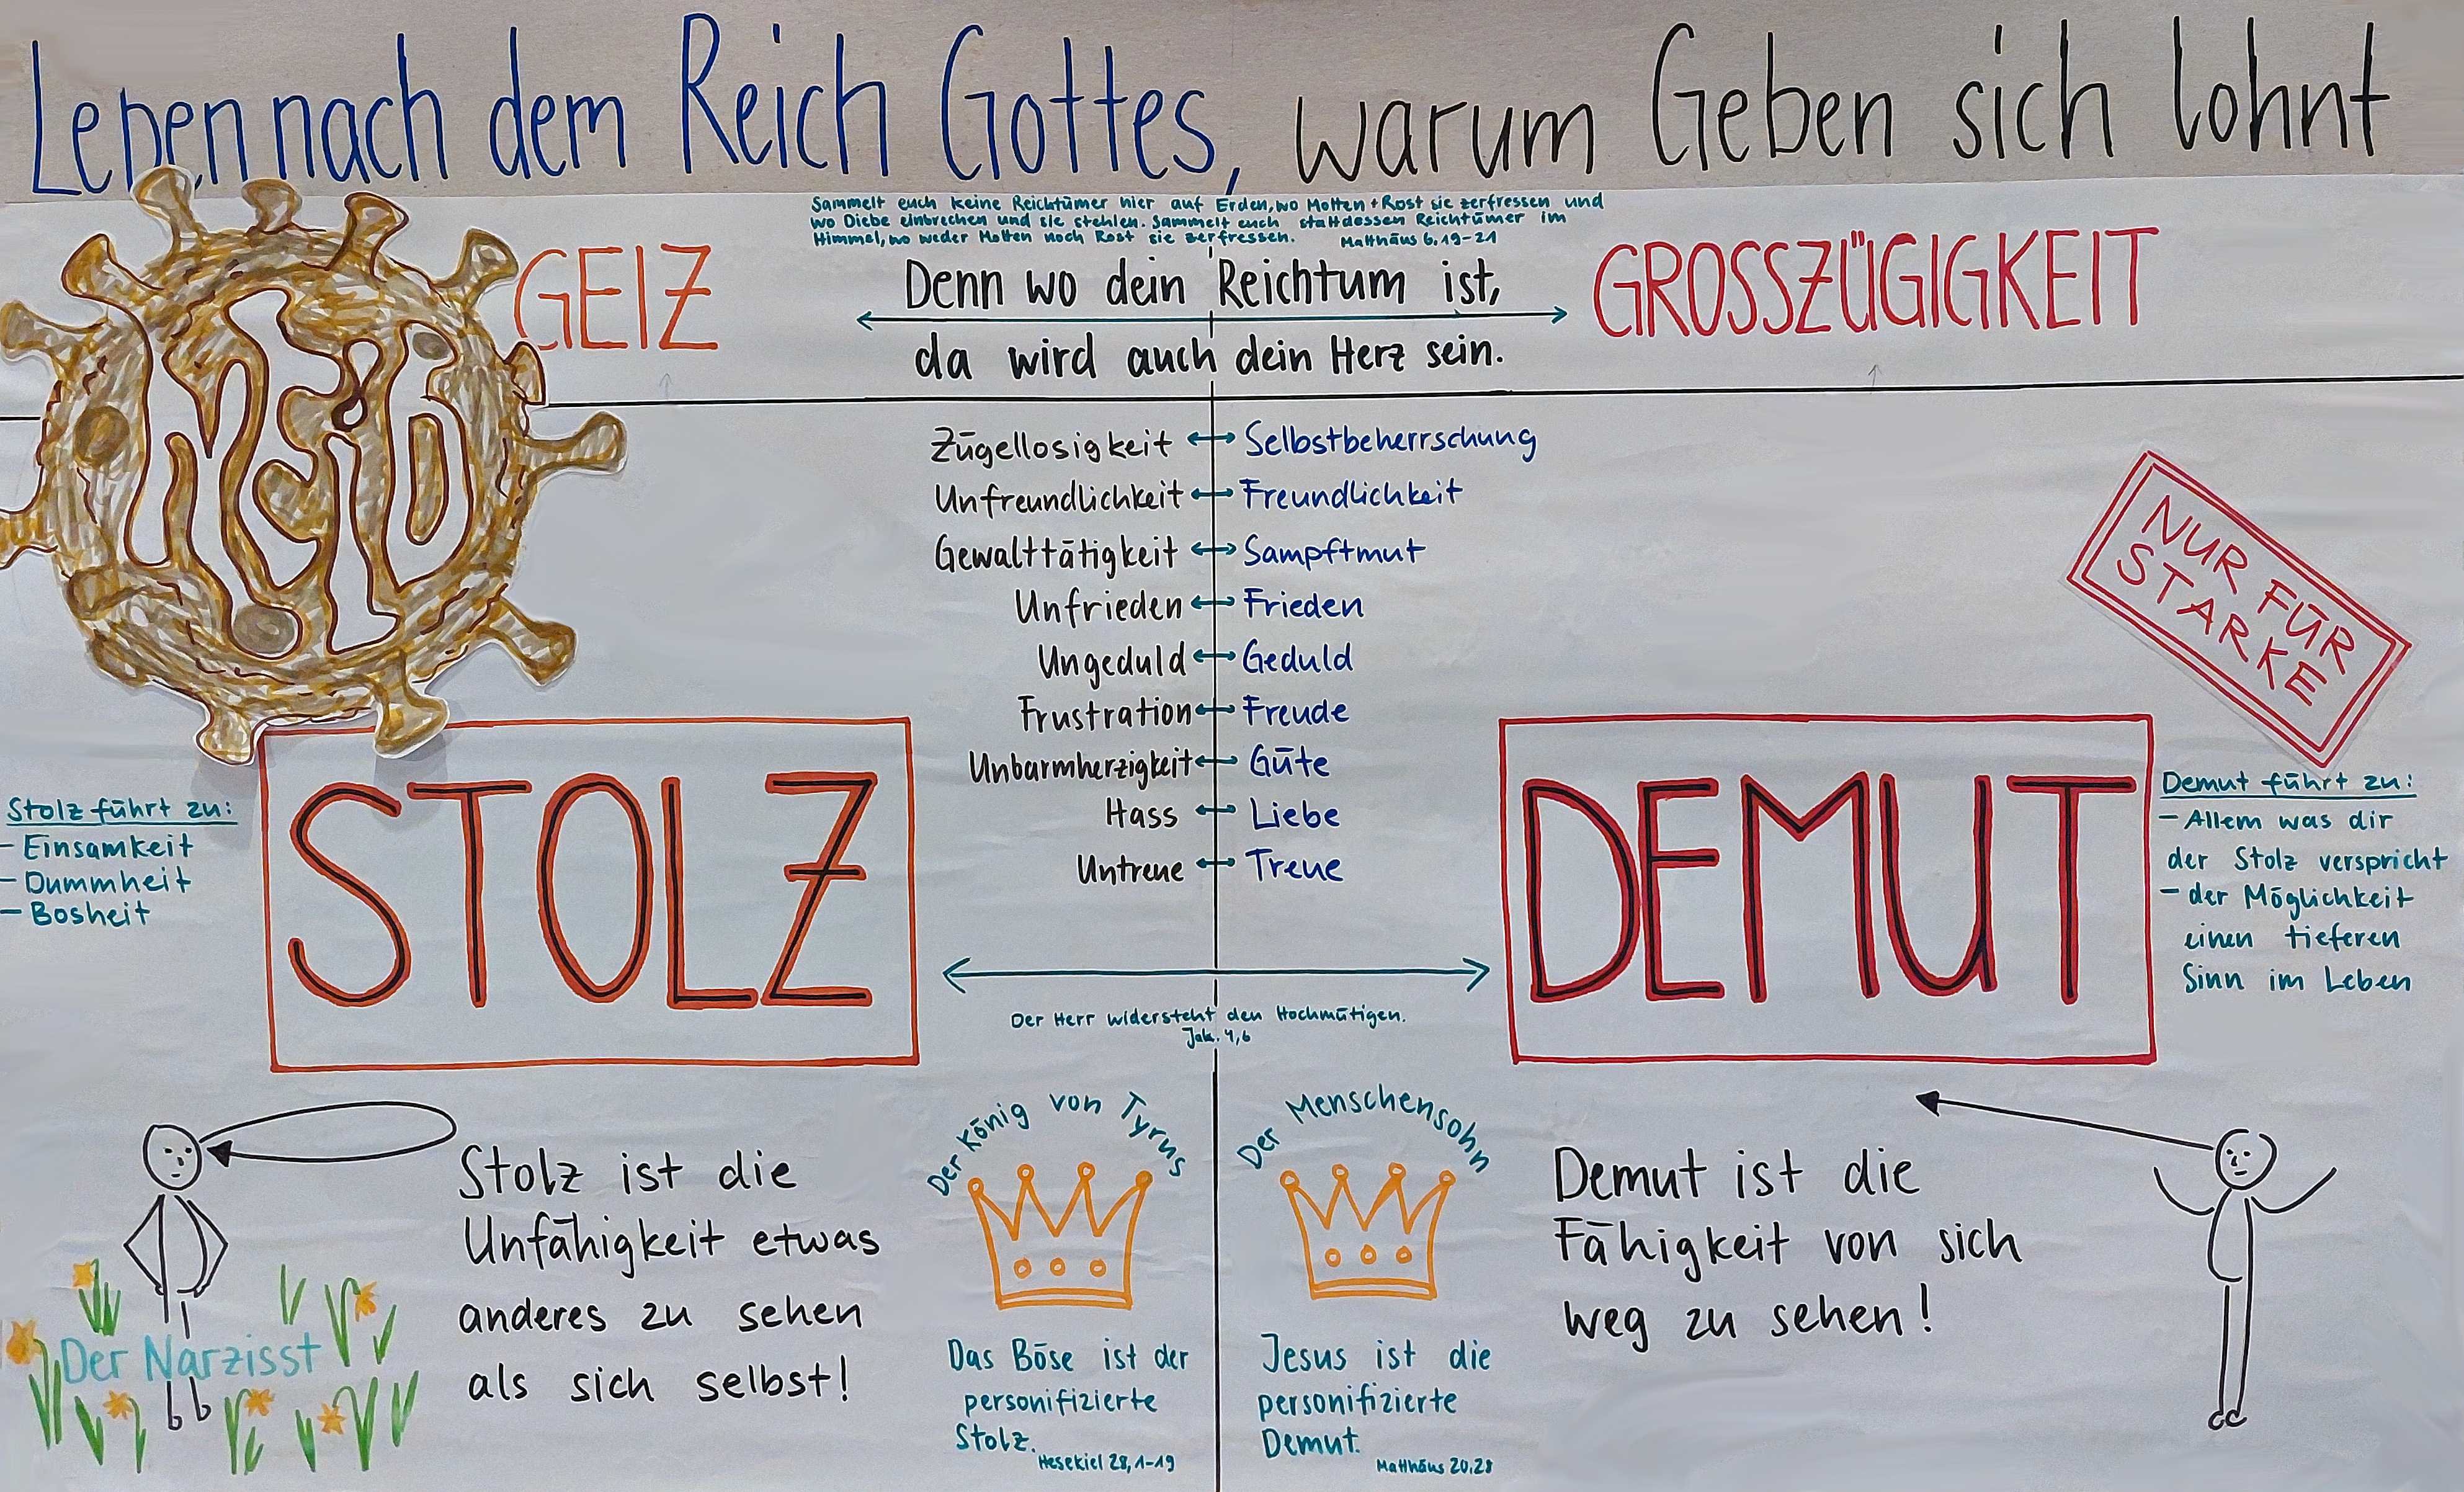 Leben nach dem Reich Gottes, warum Geben sich lohnt
Sammelt euch keine Reichtümer hier auf Erden, wo Motten + Rost sie zerfressen und
wo Diebe einbrechen und sie stehlen. Sammelt euch stattdessen Reichtümer im
Himmel, wo weder Motten noch Rost sie zerfressen. Matthäus 6,19-21
NEID
GEIZ
Denn wo dein Reichtum ist,
da wird auch dein Herz sein.
GROSSZÜGIGKEIT
Zügellosigkeit ↔ Selbstbeherrschung
Unfreundlichkeit ↔ Freundlichkeit
Gewalttätigkeit ↔ Sampftmut
Unfrieden ↔ Frieden
Ungeduld ↔ Geduld
Frustration ↔ Freude
Unbarmherzigkeit ↔ Güte
Hass ↔ Liebe
Untreue ↔ Treue
NUR FÜR
STARKE
Stolz führt zu:
- Einsamkeit
- Dummheit
- Bosheit
STOLZ
DEMUT
Demut führt zu:
- Allem was dir
der Stolz verspricht
- der Möglichkeit
einen tieferen
Sinn im Leben
Der Herr widersteht den Hochmütigen.
Jak. 4,6
Der Narzisst
Stolz ist die
Unfähigkeit etwas
anderes zu sehen
als sich selbst!
Der König von Tyrus
Das Böse ist der
personifizierte
Stolz.
Hesekiel 28,1-19
Der Menschensohn
Jesus ist die
personifizierte
Demut.
Matthäus 20,28
Demut ist die
Fähigkeit von sich
weg zu sehen!